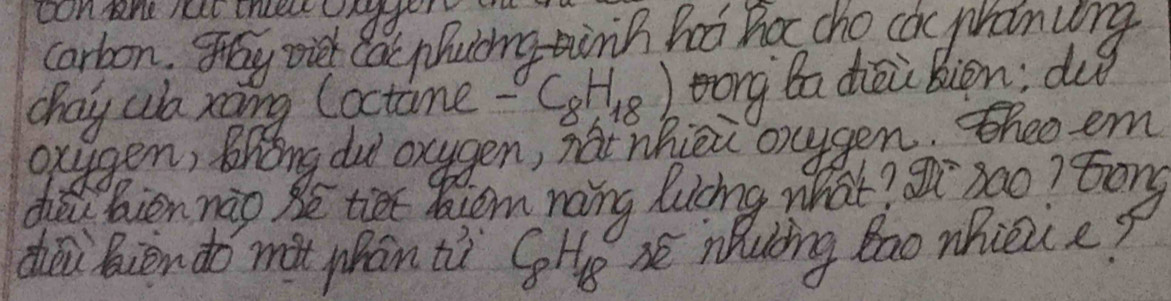 còn khi rất thiếu oxygen thì
carbon. Hãy viết các phương trình hoá học cho các phản ứng
cháy của xăng (octane - C₈H₁₈) trong ba điều kiện: dư
oxygen, không dư oxygen, rất nhiều oxygen. Theo em
điều kiện nào sẽ tiết kiệm năng lượng nhất? Vì sao? Trong
điều kiện đó một phân tử C₈H₁₈ sẽ nhường bao nhiêu e?